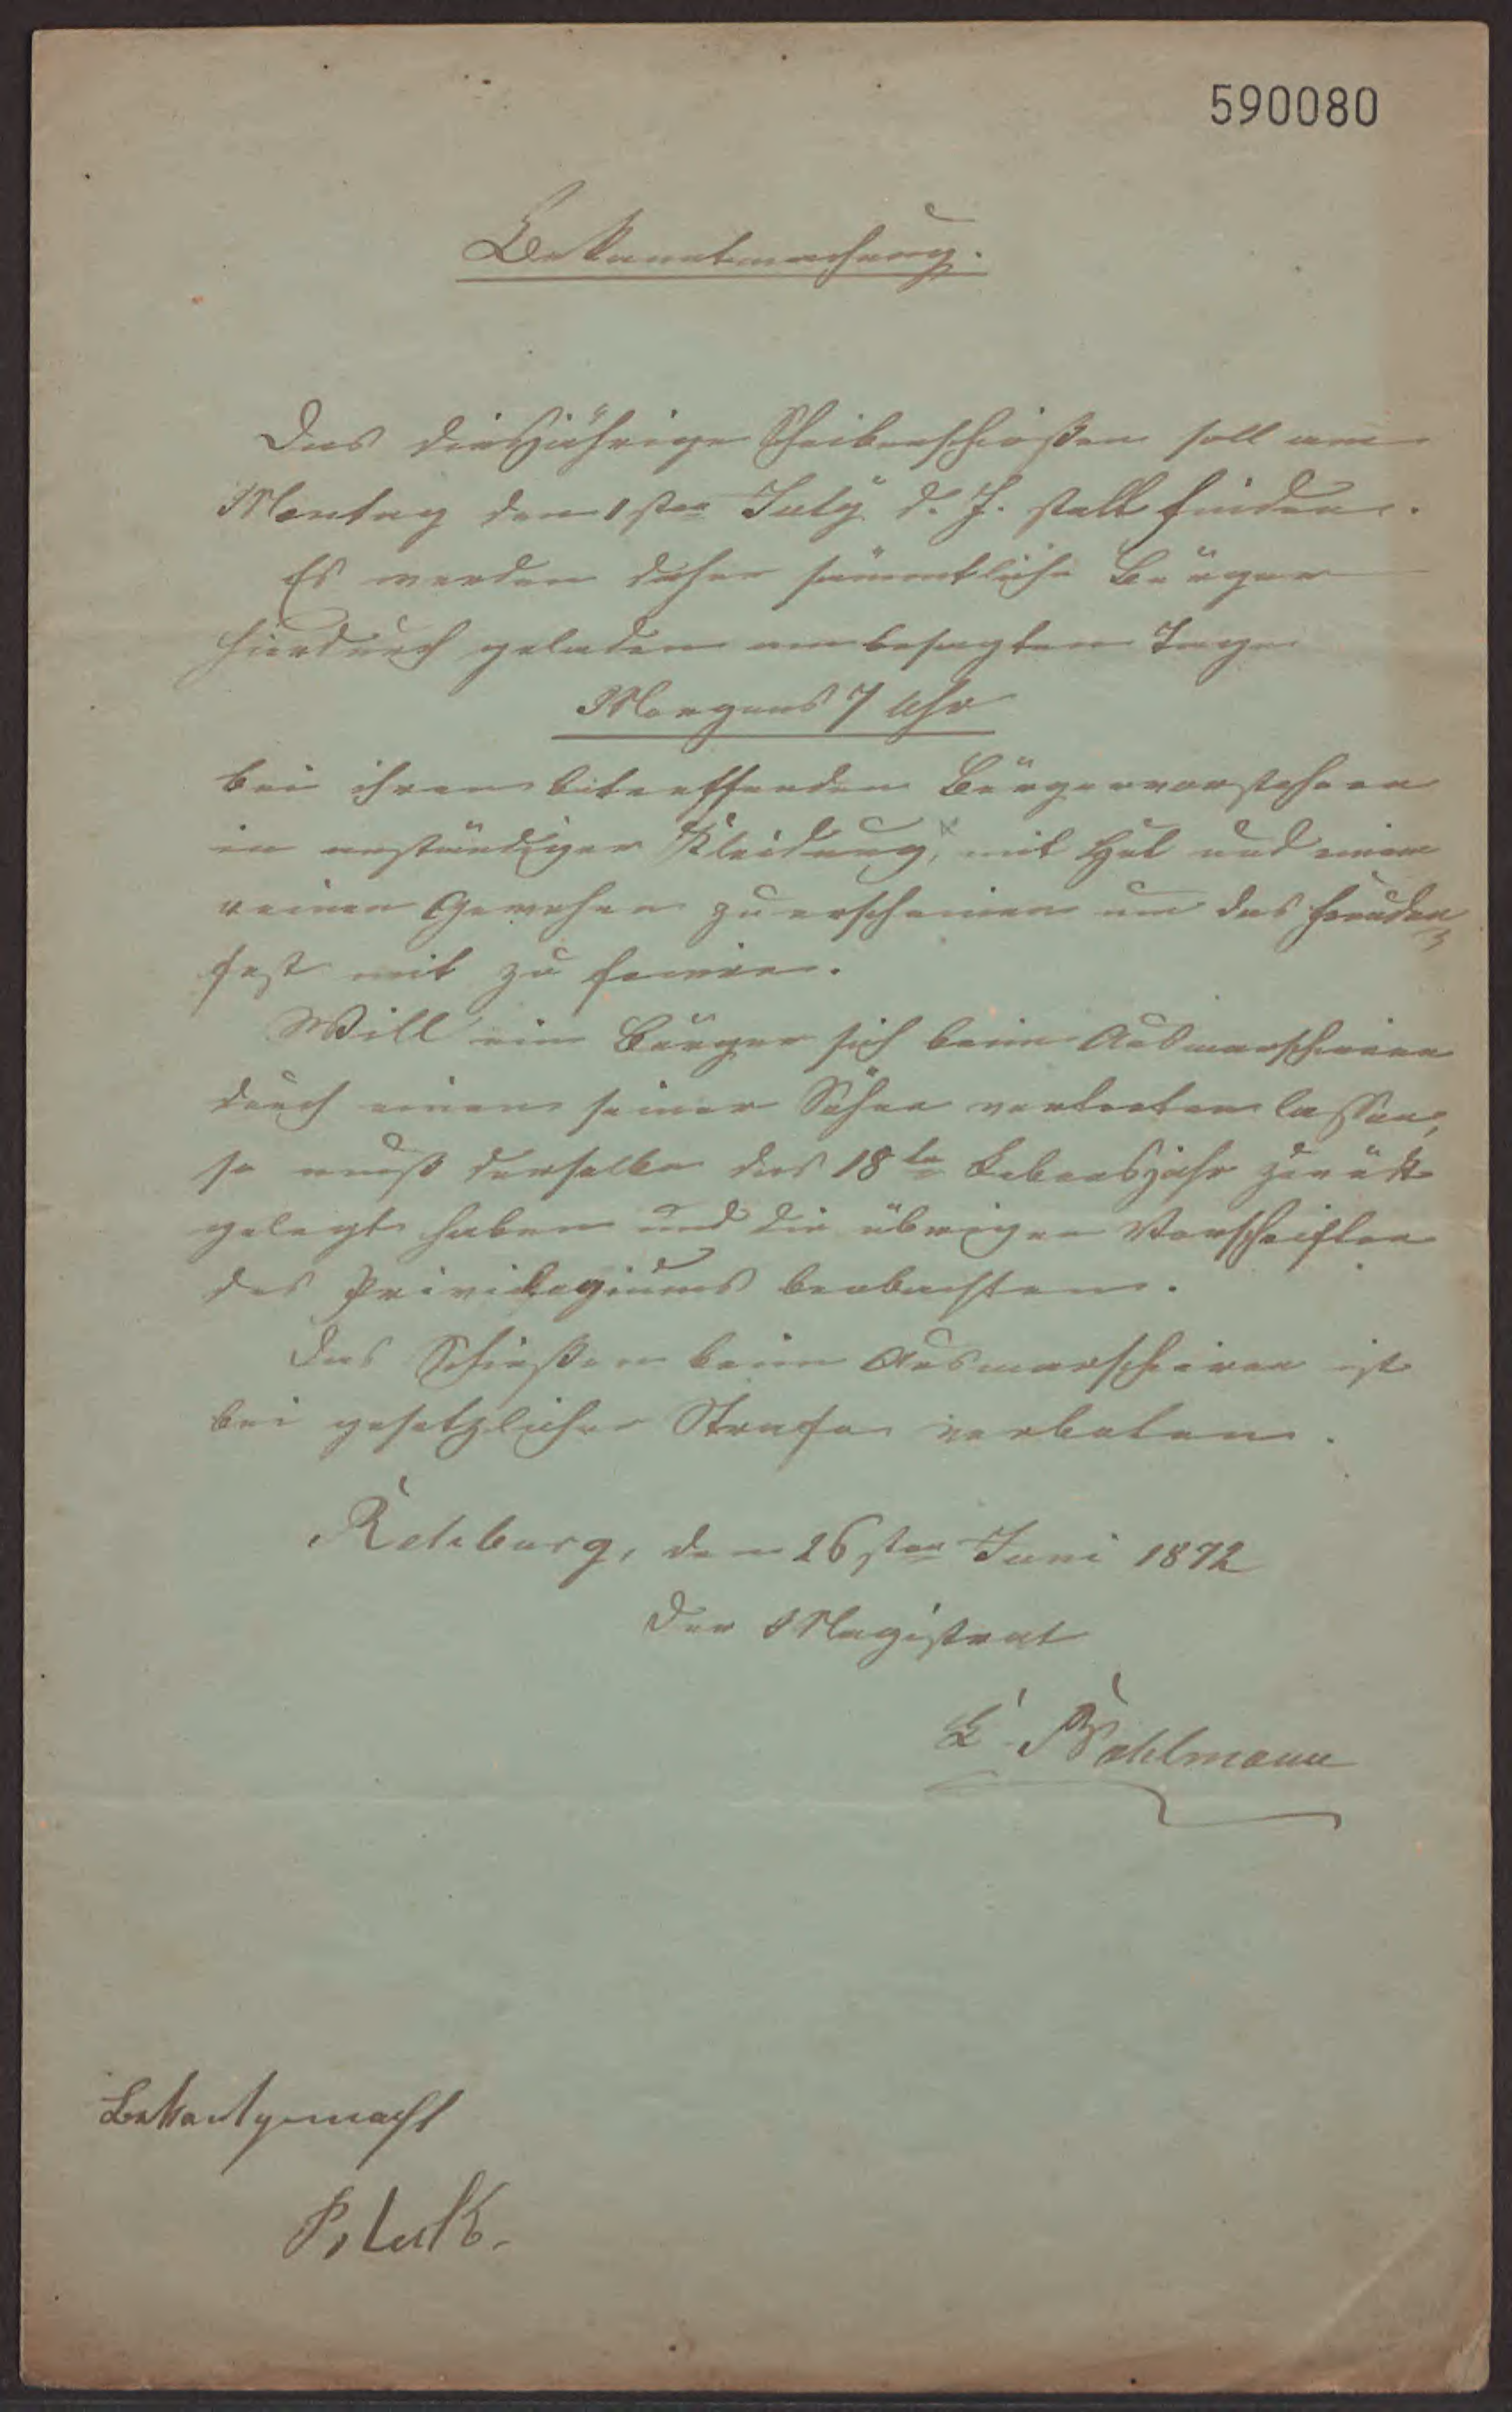 590080
Bekanntmachung.
Das diesjährige Scheibenschießen soll am
Montag den 1sten July d. J. statt finden.
Es werden daher sämmtliche Bürger
hierdurch geladen am besagten Tage
Morgens 7 Uhr
bei ihren betreffenden Bürgervorstehern
in anständiger Kleidung, mit Hut und einem
reinen Gewehr zu erscheinen um das Freuden
fest mit zu feiern.
Will ein Bürger sich beim Ausmarschieren
durch einen seiner Söhne vertreten lassen,
so muß derselbe das 18te Lebensjahr zurück
gelegt haben und die übrigen Vorschriften
des Privilegiums beobachten.
Das Schießen beim Ausmarschiren ist
bei gesetzlicher Strafe verboten.
Rehburg, den 26sten Juni 1872
Der Magistrat
Bekantgemacht